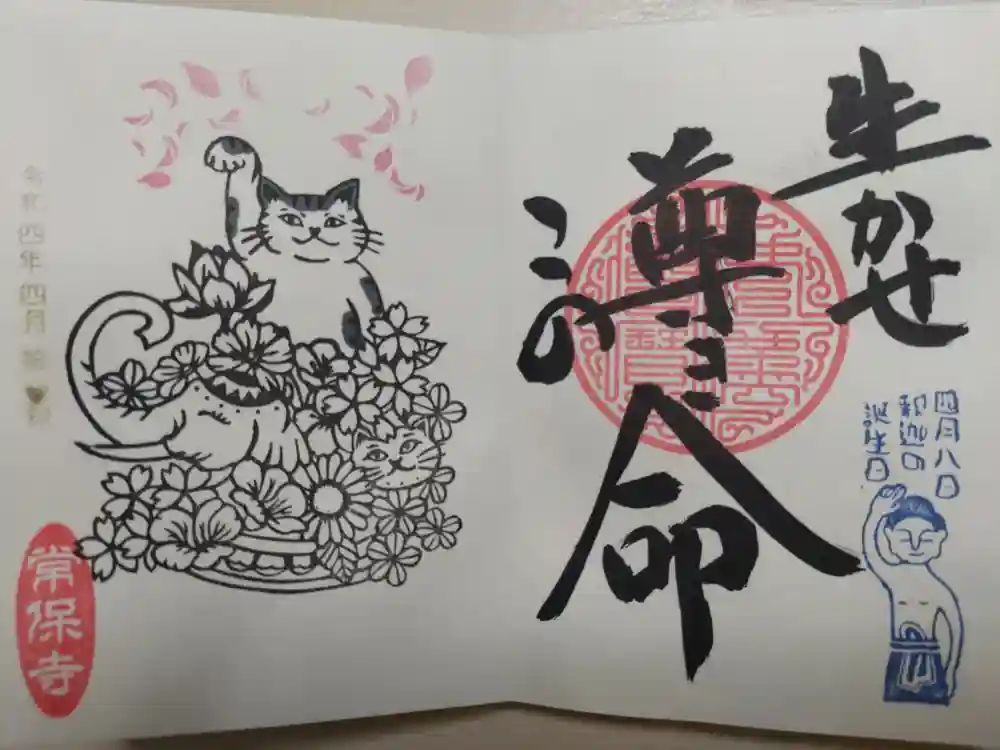 生かせ
尊き
この
命
四月八日
釈迦の
誕生日
令和四年四月
常保寺